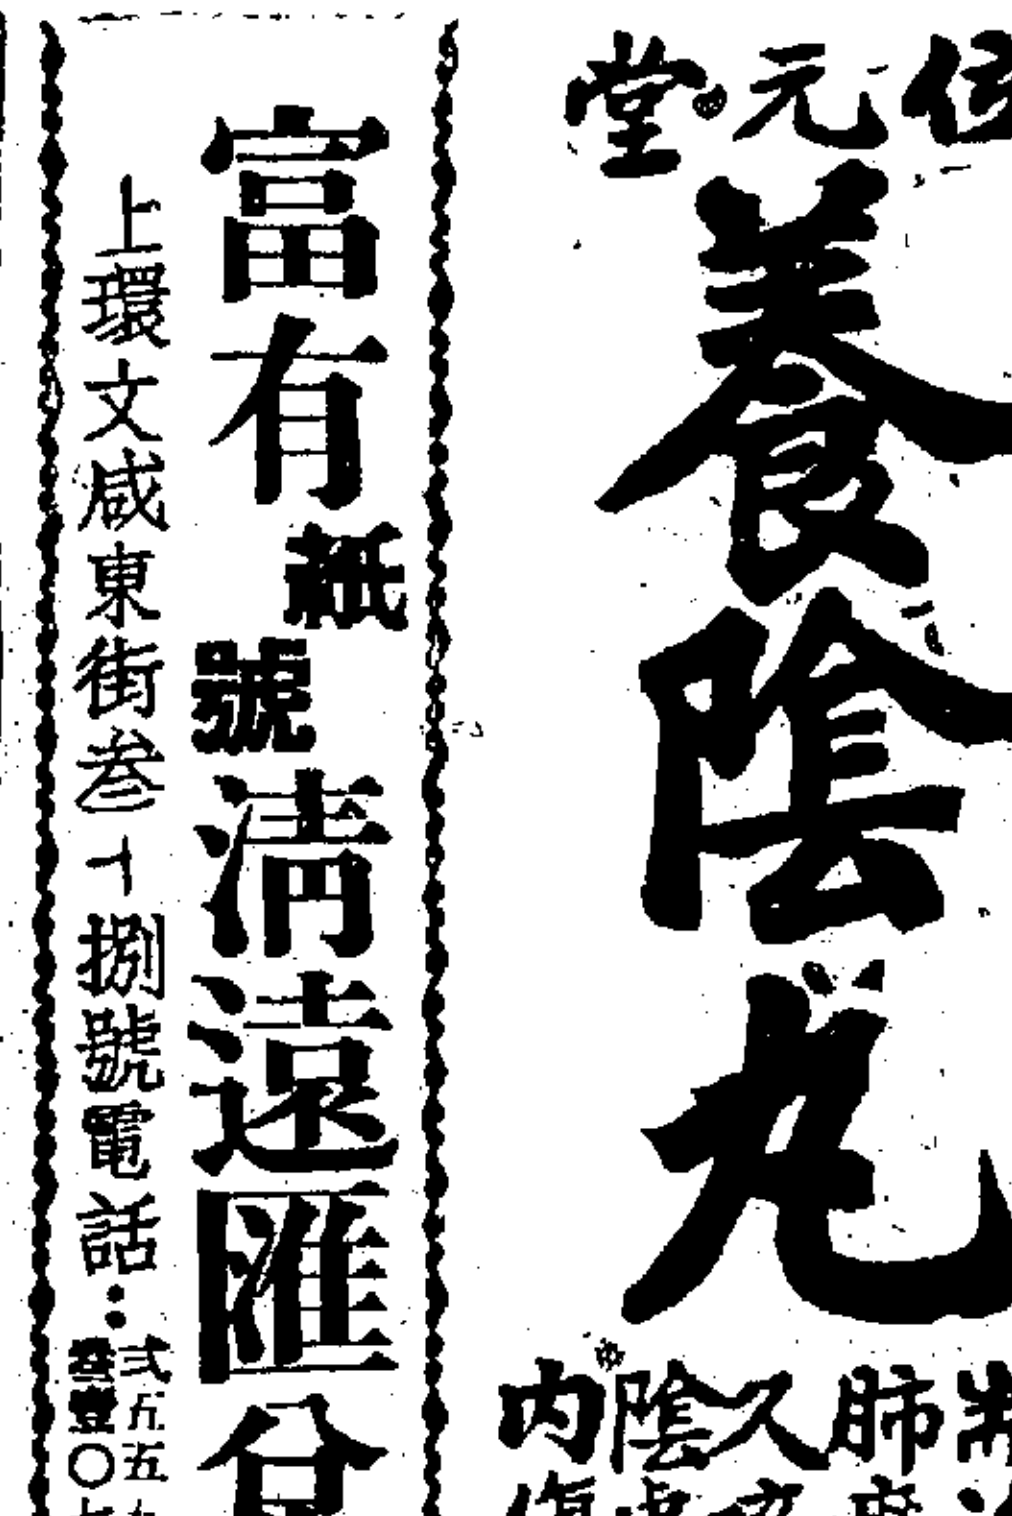 元堂
養陰丸
肺
久
陰
内
富有紙號清遠匯兌
上環文咸東街叁十捌號電話：
弍五五
叁壹〇